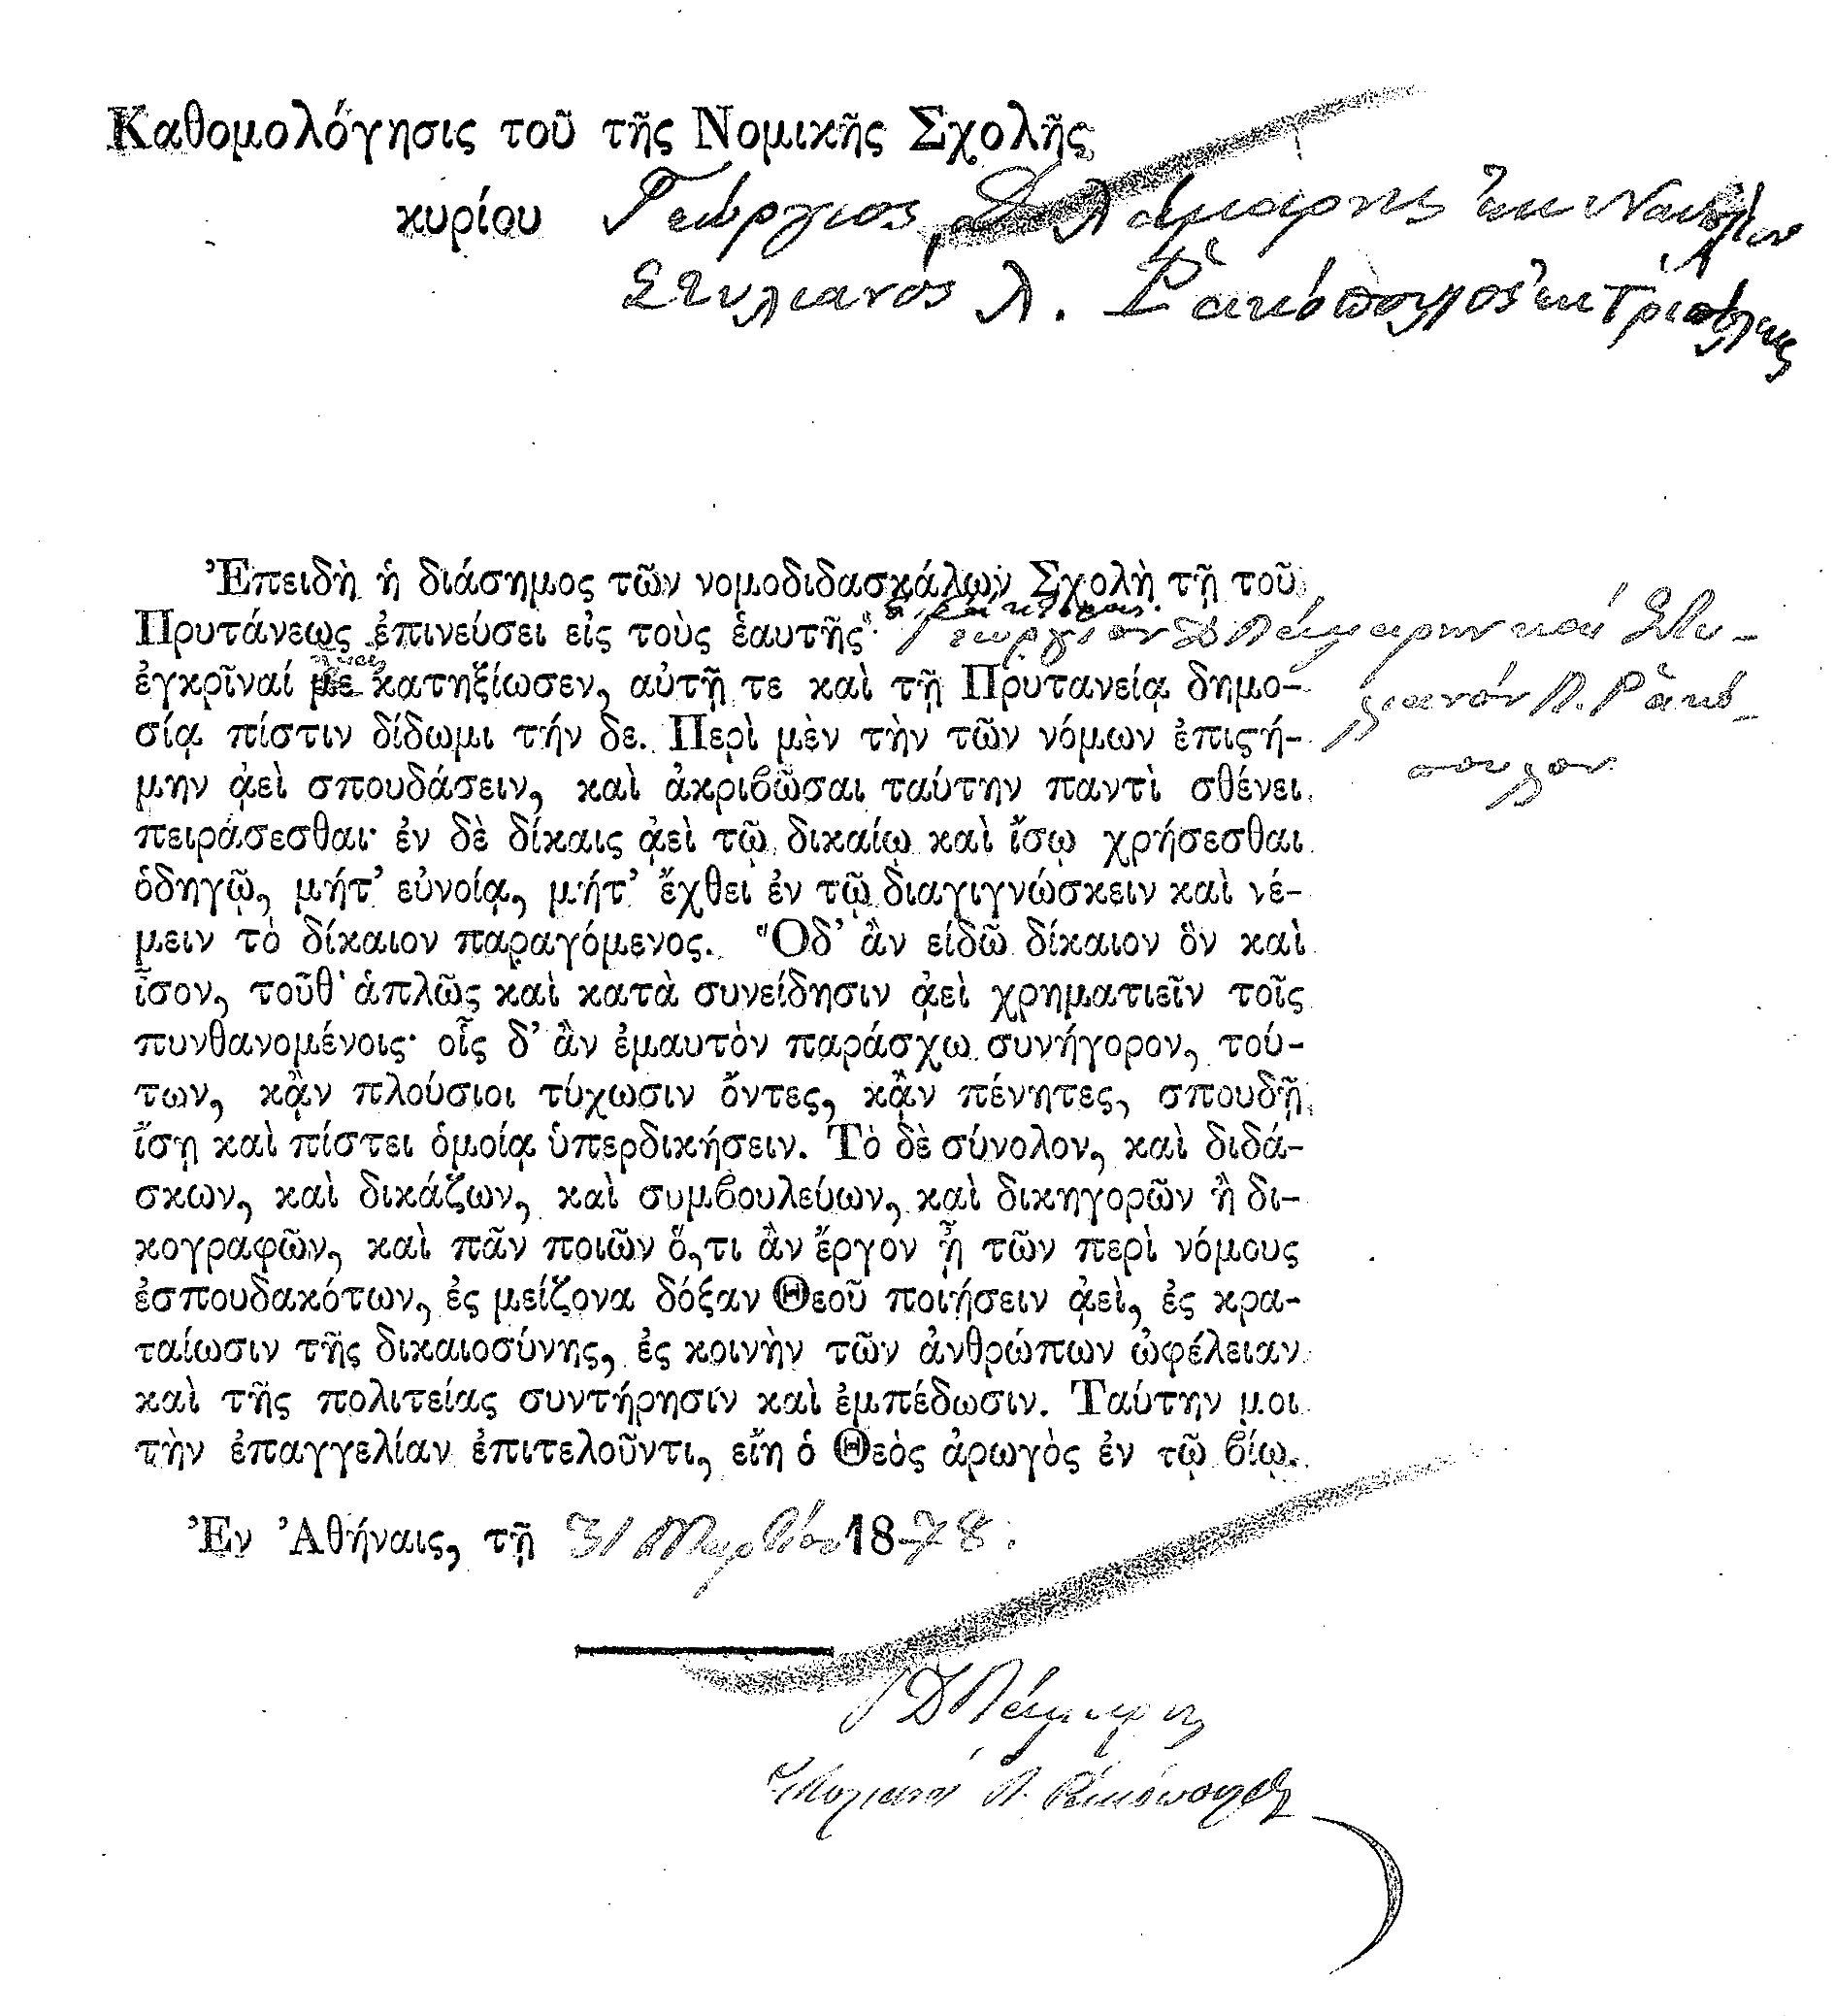 Καθομολόγησις τοῦ τῆς Νομικῆς Σχολῆς
κυρίου Γεώργιος Δ. Λάμαρης ἐκ Ναυπλίου
Στυλιανός Λ. Ῥακόπουλος ἐκ Τριπόλεως
Ἐπειδὴ ἡ διάσημος τῶν νομοδιδασκάλων Σχολὴ τῇ τοῦ
Πρυτάνεως ἐπινεύσει εἰς τοὺς ἑαυτῆς Γεώργιον Δ Λάμαρην καί Στυ-
ἐγκρῖναί με κατηξίωσεν, αὐτῇ τε καὶ τῇ Πρυτανείᾳ δημο- λιανόν Λ. Ῥακό-
σίᾳ πίστιν δίδωμι τήν δε. Περὶ μὲν τὴν τῶν νόμων ἐπιςή- πουλον
μην ᾀεὶ σπουδάσειν, καὶ ἀκριβῶσαι ταύτην παντὶ σθένει
πειράσεσθαι· ἐν δὲ δίκαις ᾀεὶ τῷ δικαίῳ καὶ ἴσῳ χρήσεσθαι
ὁδηγῷ, μήτ’ εὐνοίᾳ, μήτ’ ἔχθει ἐν τῷ διαγιγνώσκειν καὶ νέ-
μειν τὸ δίκαιον παραγόμενος. Ὅδ’ ἂν εἰδῶ δίκαιον ὂν καὶ
ἶσον, τοῦθ’ ἁπλῶς καὶ κατὰ συνείδησιν ᾀεὶ χρηματιεῖν τοῖς
πυνθανομένοις· οἷς δ’ ἂν ἐμαυτὸν παράσχω συνήγορον, τού-
των, κᾂν πλούσιοι τύχωσιν ὄντες, κᾂν πένητες, σπουδῇ
ἴσῃ καὶ πίστει ὁμοίᾳ ὑπερδικήσειν. Τὸ δὲ σύνολον, καὶ διδά-
σκων, καὶ δικάζων, καὶ συμβουλεύων, καὶ δικηγορῶν ἢ δι-
κογραφῶν, καὶ πᾶν ποιῶν ὅ,τι ἂν ἔργον ᾖ τῶν περὶ νόμους
ἐσπουδακότων, ἐς μείζονα δόξαν Θεοῦ ποιήσειν ᾀεὶ, ἐς κρα-
ταίωσιν τῆς δικαιοσύνης, ἐς κοινὴν τῶν ἀνθρώπων ὠφέλειαν
καὶ τῆς πολιτείας συντήρησιν καὶ ἐμπέδωσιν. Ταύτην μοι
τὴν ἐπαγγελίαν ἐπιτελοῦντι, εἴη ὁ Θεὸς ἀρωγὸς ἐν τῷ βίῳ.
Ἐν Ἀθήναις, τῇ 31 Μαρτίου 1878.
Γ Δ Λάμαρης
Στυλιανός Λ. Ῥακόπουλος